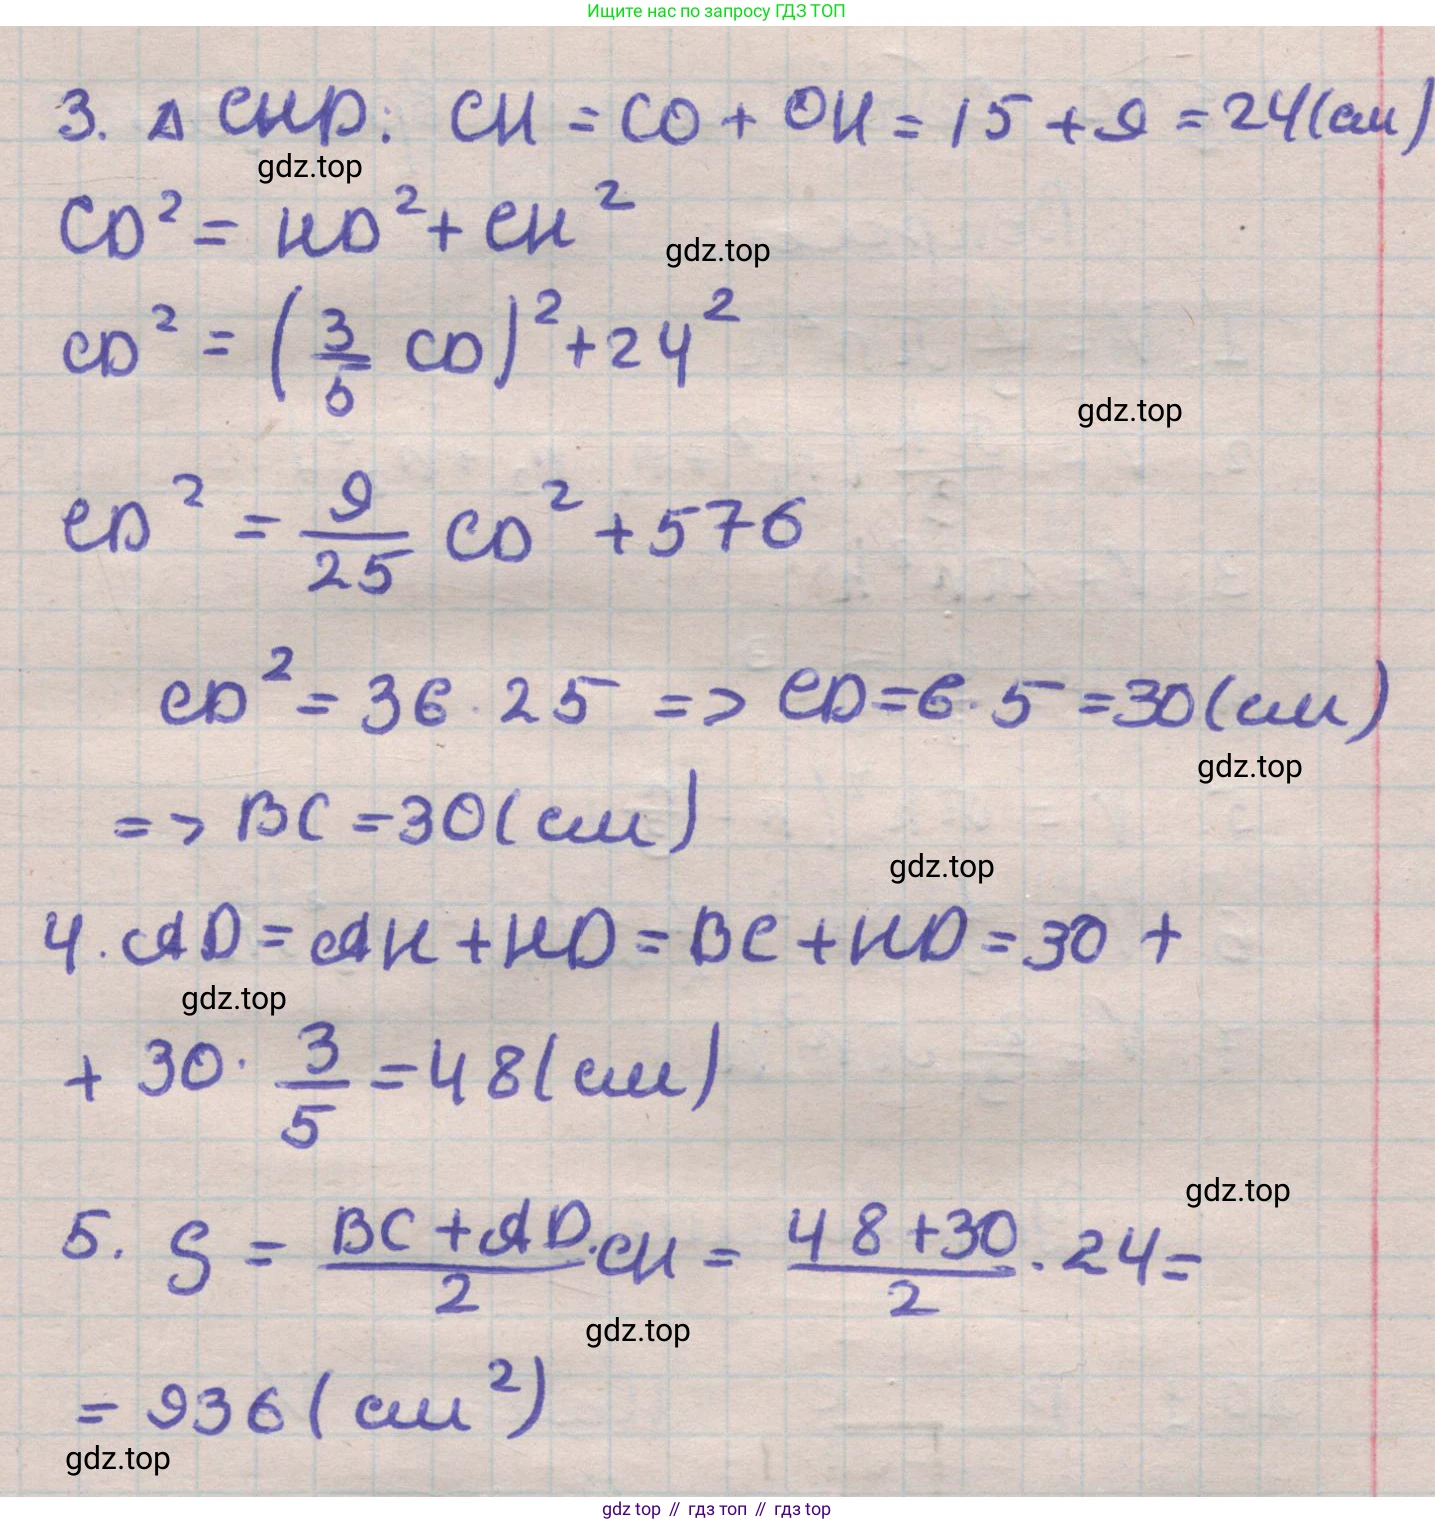 Ищите нас по запросу ГДЗ ТОП
3. Δ CHD: CH = CO + OH = 15 + 9 = 24 (см)
gdz.top
CD² = HD² + CH²
gdz.top
CD² = (3/5 CD)² + 24²
gdz.top
CD² = 9/25 CD² + 576
CD² = 36 · 25 => CD = 6 · 5 = 30 (см)
gdz.top
=> BC = 30 (см)
gdz.top
4. AD = AH + HD = BC + HD = 30 +
gdz.top
+ 30 · 3/5 = 48 (см)
gdz.top
5. S = BC + AD/2 · CH = 48 + 30/2 · 24 =
gdz.top
= 936 (см²)
gdz.top
gdz top // гдз топ // гдз top